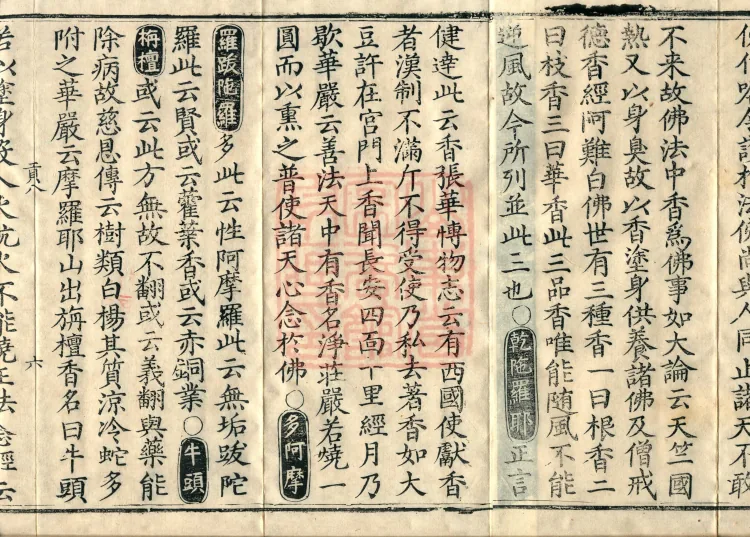 與人同止諸天不敢
不来故佛法中香爲佛事如大論云天竺國
熱又以身臭故以香塗身供養諸佛及僧戒
德香經阿難白佛世有三種香一曰根香二
曰枝香三曰華香此三品香唯能随風不能
逆風故今所列並此三也○乾陁羅耶正言
健達此云香張華愽物志云有西國使獻香
者漢制不滿斤不得受使乃私去著香如大
豆許在宮門上香聞長安四面十里經月乃
歇華嚴云善法天中有香名淨莊嚴若燒一
圓而以熏之普使諸天心念於佛○多阿摩
羅跋陁羅多此云性阿摩羅此云無垢跋陀
羅此云賢或云藿葉香或云赤銅葉○牛頭
栴檀或云此方無故不翻或云義翻與藥能
除病故慈恩傳云樹類白楊其質涼冷蛇多
附之華嚴云摩羅耶山出旃檀香名曰牛頭
貢八 六
若以塗身設入火坑火不能燒正法念經云